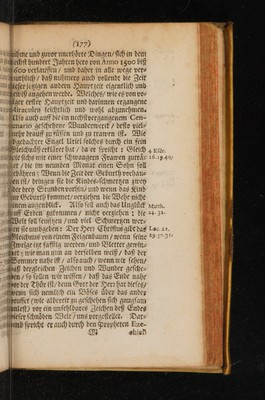 (177)
sehene und zuvor unerhörte Dingen/ sich in dem
sechst hundert Jahren hero von Anno 1500 biß
verlauffen/ und daher in alle wege ver=
muthlich/ daß nunmehr auch vollends die Zeit
dieser letzten andern Hauptzeit eigentlich und
angehen werde. Welches/ wie es von vo=
riger erster Hauptzeit und darinnen ergangene
Miraculen leichtlich und wohl abzunehmen.
Also auch auff die im nechstvergangenem Cen=
tenario geschehene Wunderwerck/ desto viel=
mehr drauff zu füssen und zu trawen ist. Wie
gedachter Engel Uriel solches durch ein fein
Gleichnüß erkläret hat/ da er spricht: Gleich
wie siehe mit einer schwangern Frawen zuträ=
get/ die im neundten Monat einen Sohn soll
gebähren: Wenn die Zeit der Geburth vorhan=
den ist/ bringen sie die Kindes=schmertzen zwey
oder drey Stunden vorhin/ und wenn das Kind
in Geburth kommet/ verziehen die Wehe nicht
einem augenblick. Also soll auch das Unglück
auff Erden zukommen/ nicht verziehen; die
Welt soll seufftzen/ und viel Schmertzen wer=
den sie umbgeben: Der Herr Christus gibt das
Gleichnus von einem Feigenbaum/ wenn seine
Zweige itzt safftig werden/ und Bletter gewin=
net; wie man nun an derselben weiß/ daß der
Sommer nahe ist/ also auch/ wenn wir sehen/
daß dergleichen Zeichen und Wunder gesche=
hen/ so sollen wir wissen/ daß das Ende nahe
vor der Thür ist/ denn Gott der Herr hat dieses/
wenn sich nemlich ein Böses über das ander
häuffet (wie albereit zu geschehen sich gnugsam
anlest) vor ein unfehlbares Zeichen deß Endes
dieser schnöden Welt/ uns vorgestellet. Dar=
umb spricht er auch durch den Propheten Eze=
M
chiel
4 Esdr.
Matth.
24. 32.
Luc. 21.